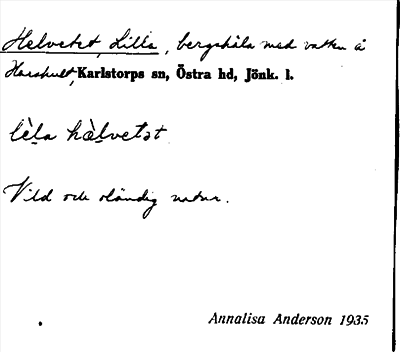 Helvetet, Lilla, bergshåla med vatten å
Harshult, Karlstorps sn, Östra hd, Jönk. l.
lè̱la hæ̀ḻvetət
Vild och oländig natur.
Annalisa Anderson 1935